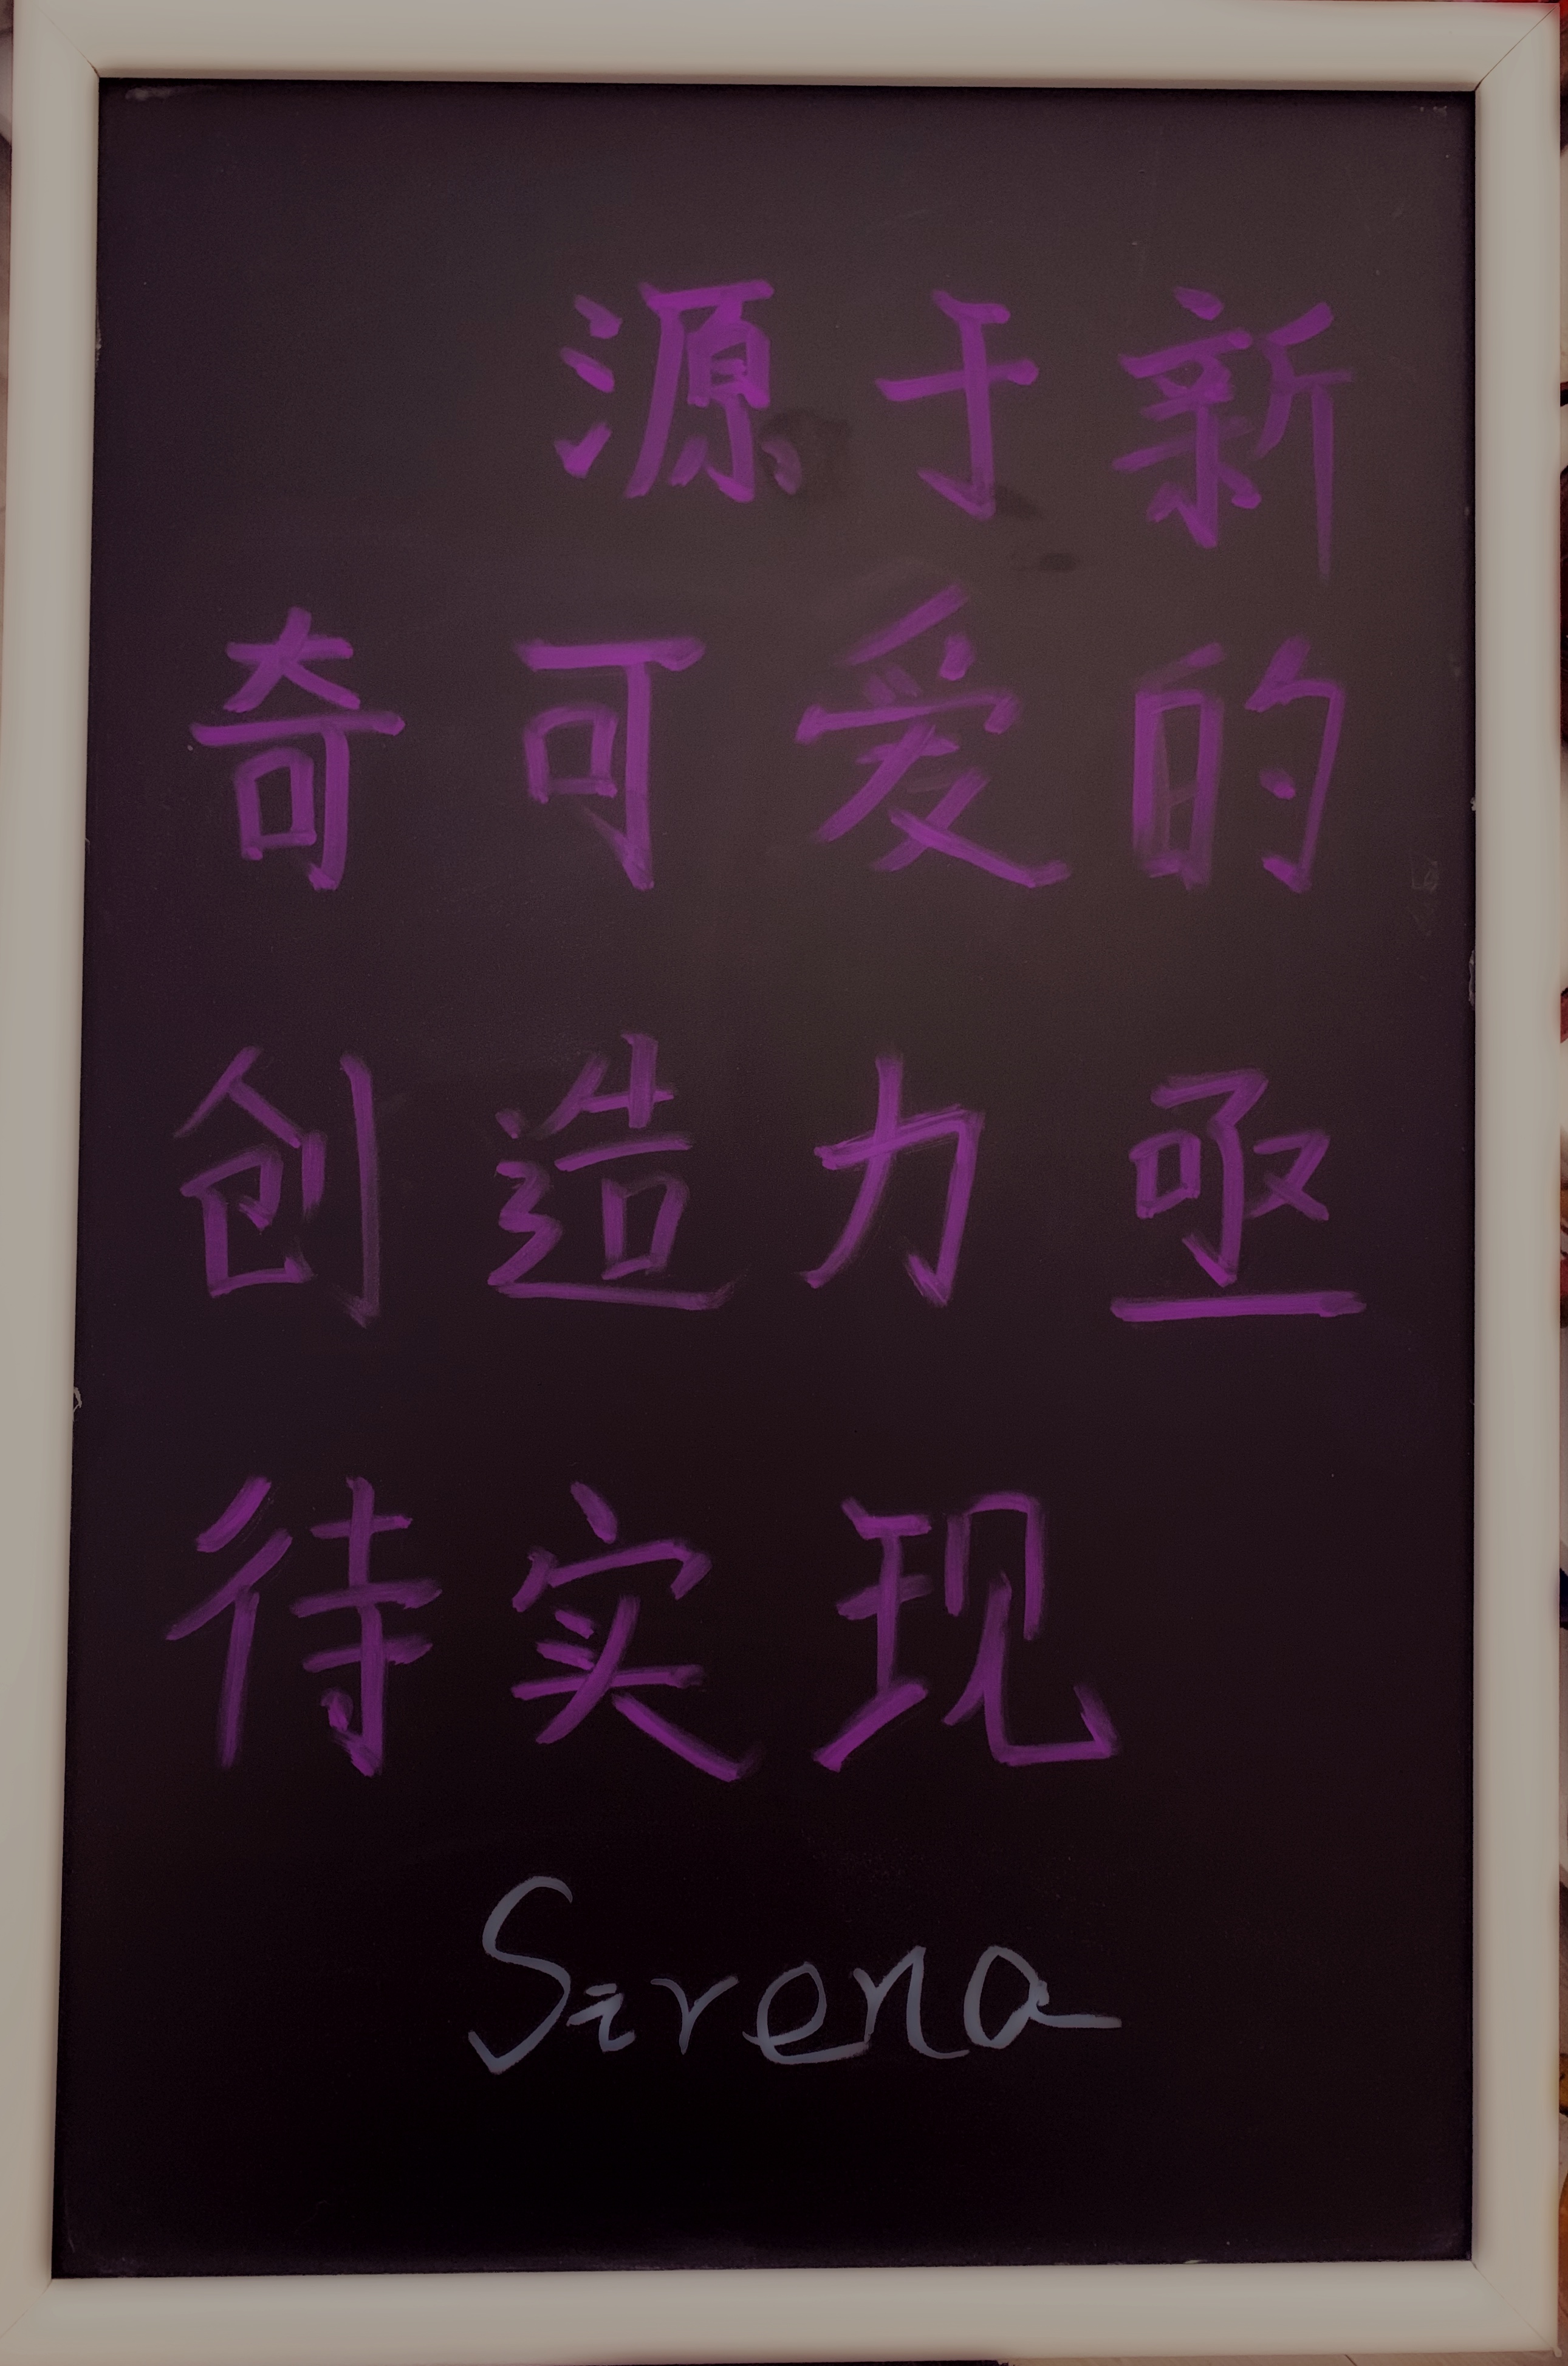 源于新
奇可爱的
创造力亟
待实现
Sirena